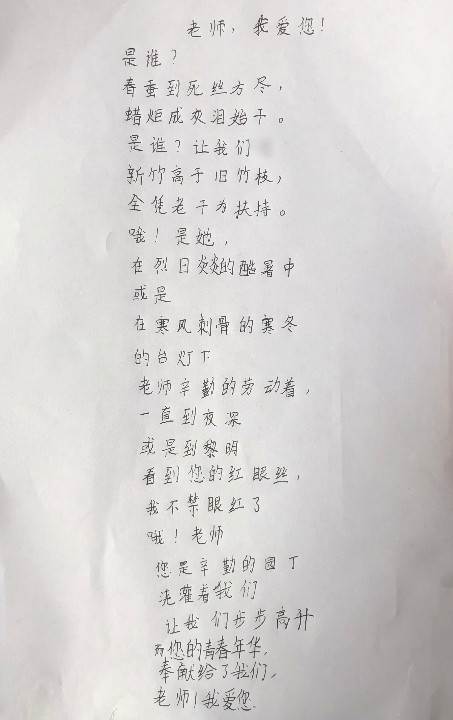 老师，我爱您！
是谁？
春蚕到死丝方尽，
蜡炬成灰泪始干。
是谁？让我们
新竹高于旧竹枝，
全凭老干为扶持。
哦！是她，
在烈日炎炎的酷暑中
或是
在寒风刺骨的寒冬
的台灯下
老师辛勤的劳动着，
一直到夜深
或是到黎明
看到您的红眼丝，
我不禁眼红了
哦！老师
您是辛勤的园丁
浇灌着我们
让我们步步高升
而您的青春年华，
奉献给了我们，
老师！我爱您